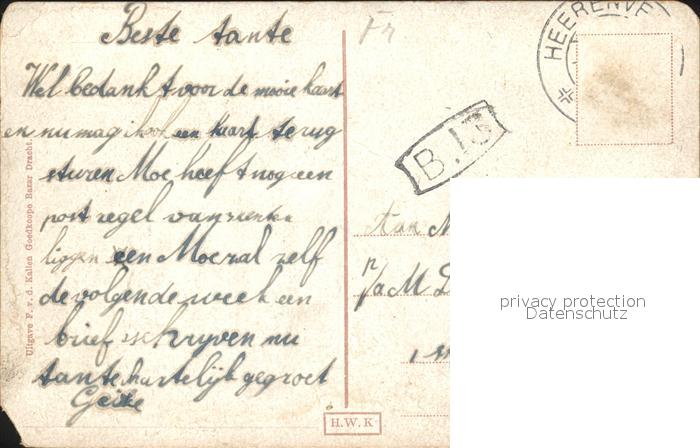 Beste tante
Wel bedankt voor de mooie kaart
en nu mag ik ook een kaart terug
sturen Moe heeft nog een
post zegel van
liggen en Moe zal zelf
de volgende week een
brief schrijven nu
tante hartelijk gegroet
Geiske
Uitgave F. v. d. Kallen Goedkoope Bazar Dracht.
Fr
HEERENVE
B.13
Aan M
p/a M
H.W.K
privacy protection
Datenschutz